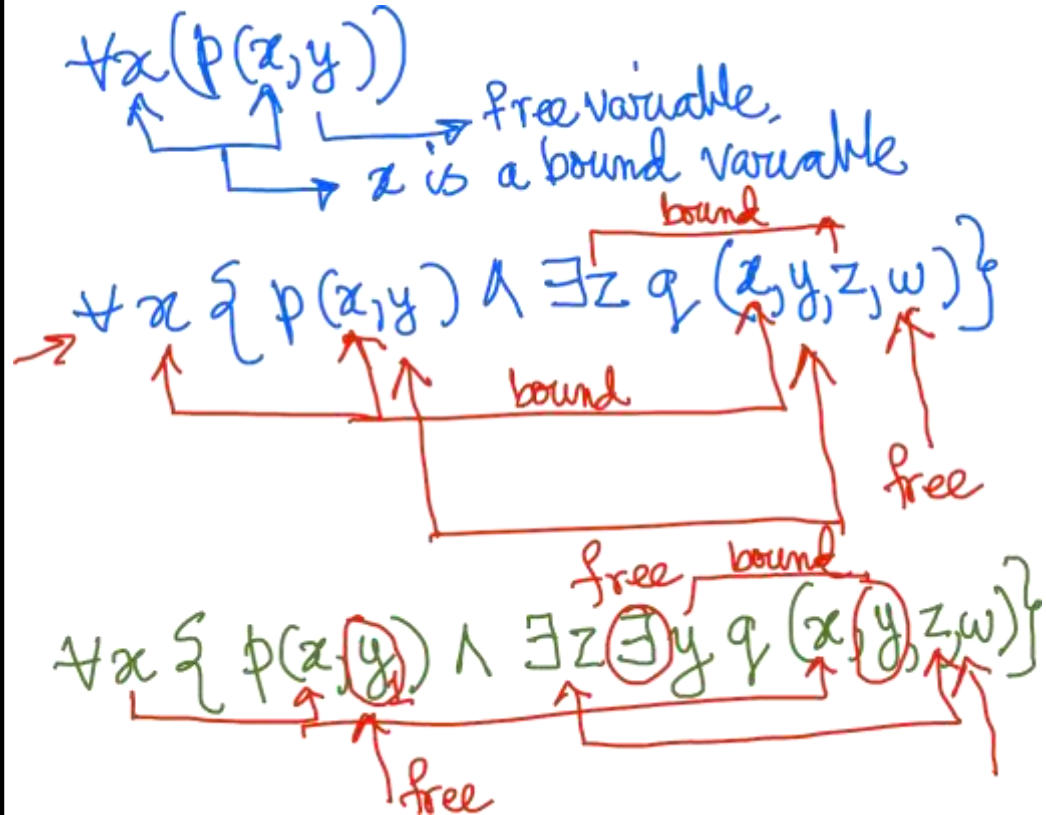 ∀x(p(x,y))
free variable,
x is a bound variable
bound
∀x { p(x,y) ∧ ∃z q (x,y,z,w)}
bound
free
free bound
∀x { p(x,y1) ∧ ∃z ∃y q (x,y,z,w)}
free